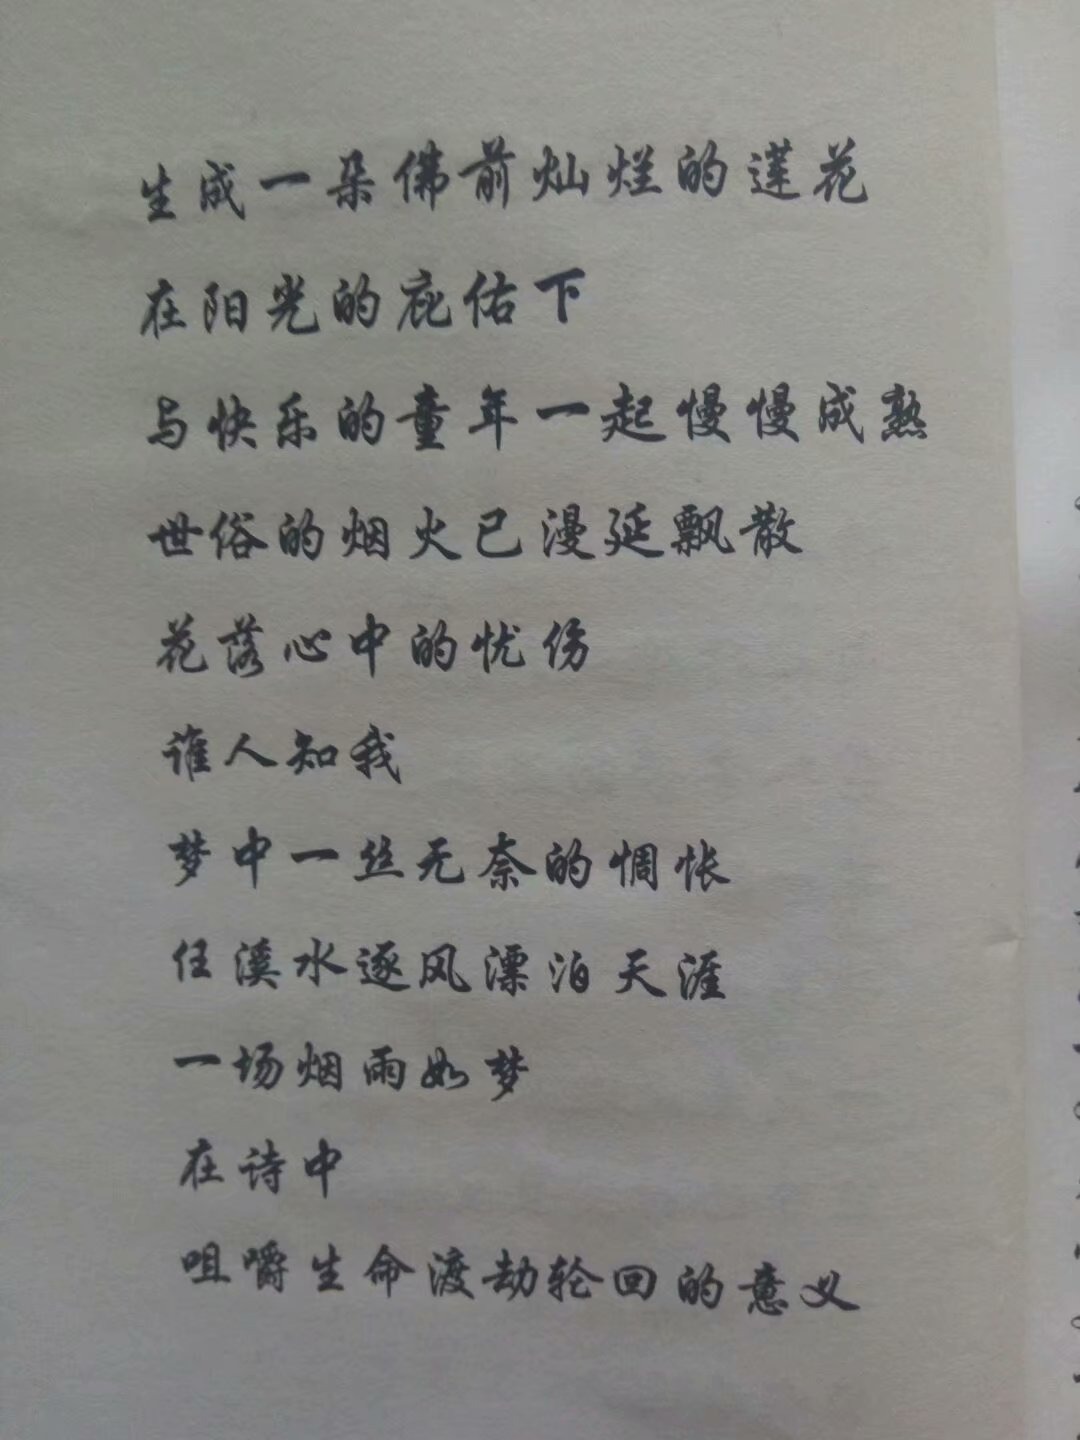 生成一朵佛前灿烂的莲花
在阳光的庇佑下
与快乐的童年一起慢慢成熟
世俗的烟火已漫延飘散
花落心中的忧伤
谁人知我
梦中一丝无奈的惆怅
任溪水逐风漂泊天涯
一场烟雨如梦
在诗中
咀嚼生命渡劫轮回的意义